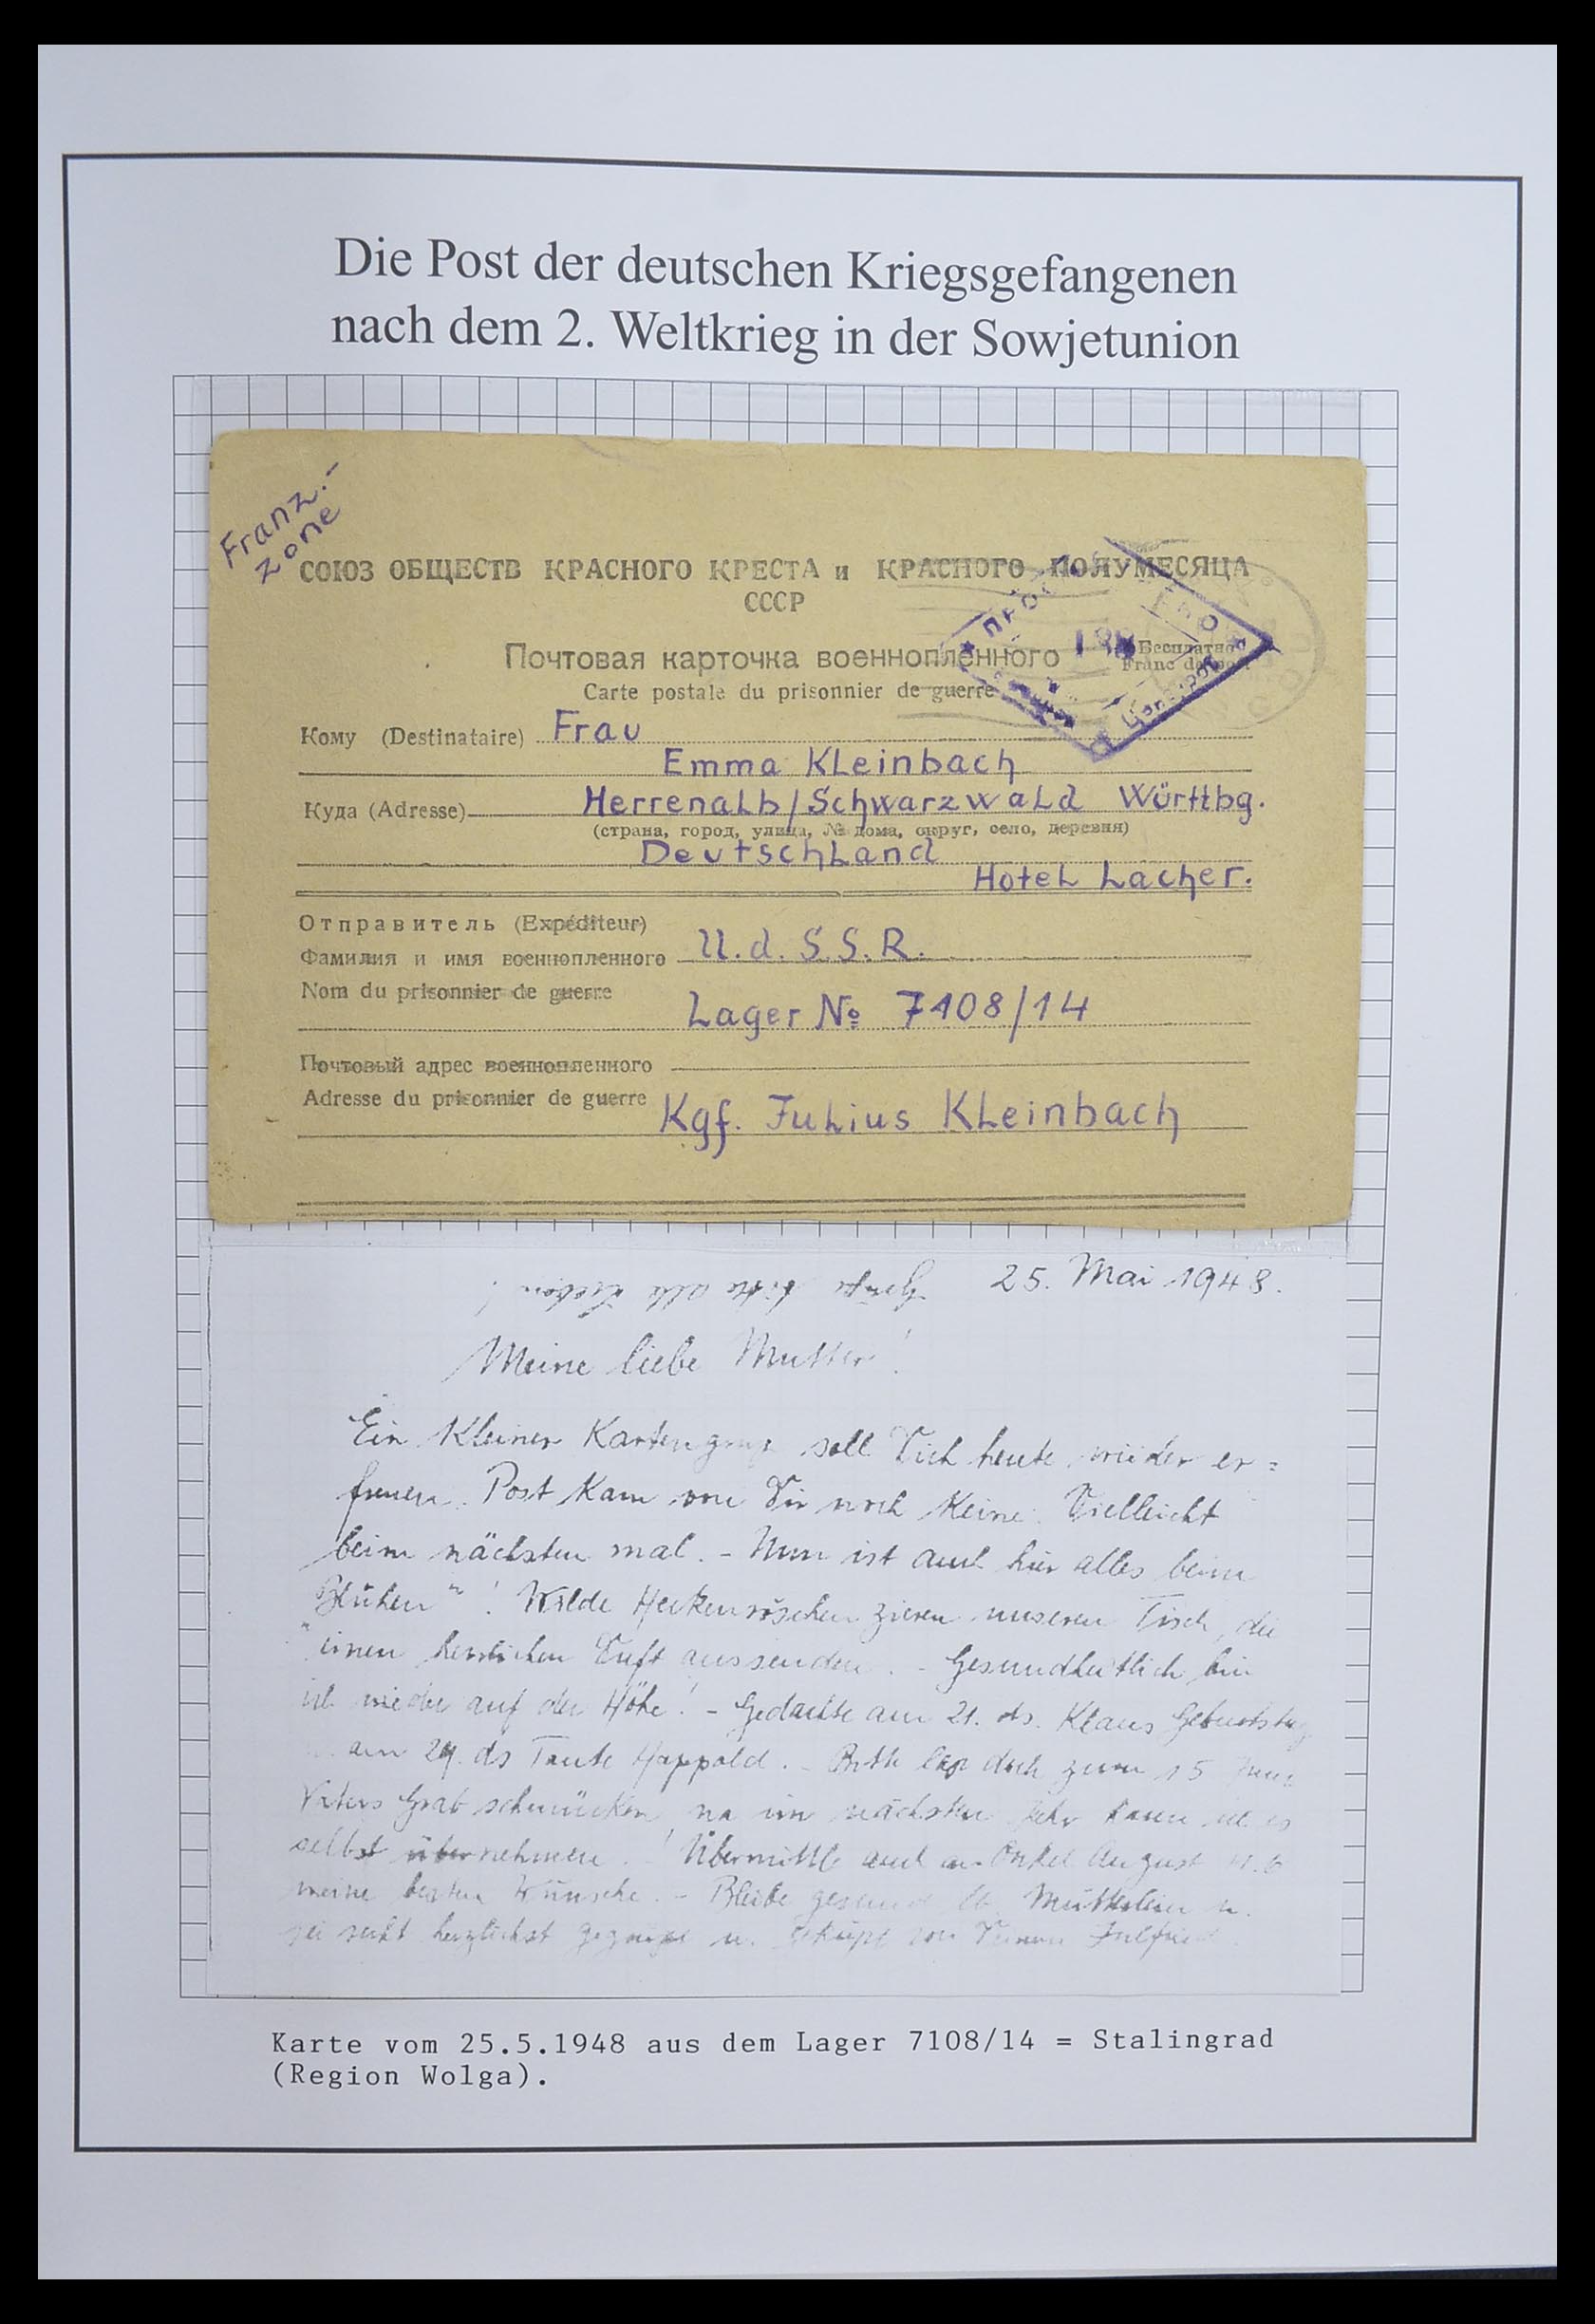 Die Post der deutschen Kriegsgefangenen
nach dem 2. Weltkrieg in der Sowjetunion
Franz.-
Zone
СОЮЗ ОБЩЕСТВ КРАСНОГО КРЕСТА и КРАСНОГО ПОЛУМЕСЯЦА
СССР
Почтовая карточка военнопленного
Бесплатно
Franc de port
Carte postale du prisonnier de guerre
Кому (Destinataire) Frau
Emma Kleinbach
Куда (Adresse) Herrenalb/Schwarzwald Württbg.
(страна, город, улица, № дома, округ, село, деревня)
Deutschland
Hotel Lacher.
Отправитель (Expéditeur)
Фамилия и имя военнопленного U.d.S.S.R.
Nom du prisonnier de guerre
Lager № 7108/14
Почтовый адрес военнопленного
Adresse du prisonnier de guerre Kgf. Julius Kleinbach
25. Mai 1948.
Grüße bitte alle Lieben!
Meine liebe Mutter!
Ein kleiner Kartengruß soll Dich heute wieder er=
freuen. Post kam von Dir noch keine. Vielleicht
beim nächsten mal. - Nun ist auch hier alles beim
Blühen"! Wilde Heckenröschen zieren unseren Tisch, die
einen herrlichen Duft aussenden. - Gesundheitlich bin
ich wieder auf der Höhe! - Gedachte am 21. ds. Klaus Geburtstag
am 24. ds Tante Happold. - Bitte laß doch zum 15 Juni
Vaters Grab schmücken, im nächsten Jahr kann ich es
selbst übernehmen! Übermittle auch an Onkel August
meine besten Wünsche. - Bleibe gesund lb. Mütterlein u.
sei recht herzlichst gegrüßt u. geküßt von Deinem
Karte vom 25.5.1948 aus dem Lager 7108/14 = Stalingrad
(Region Wolga).